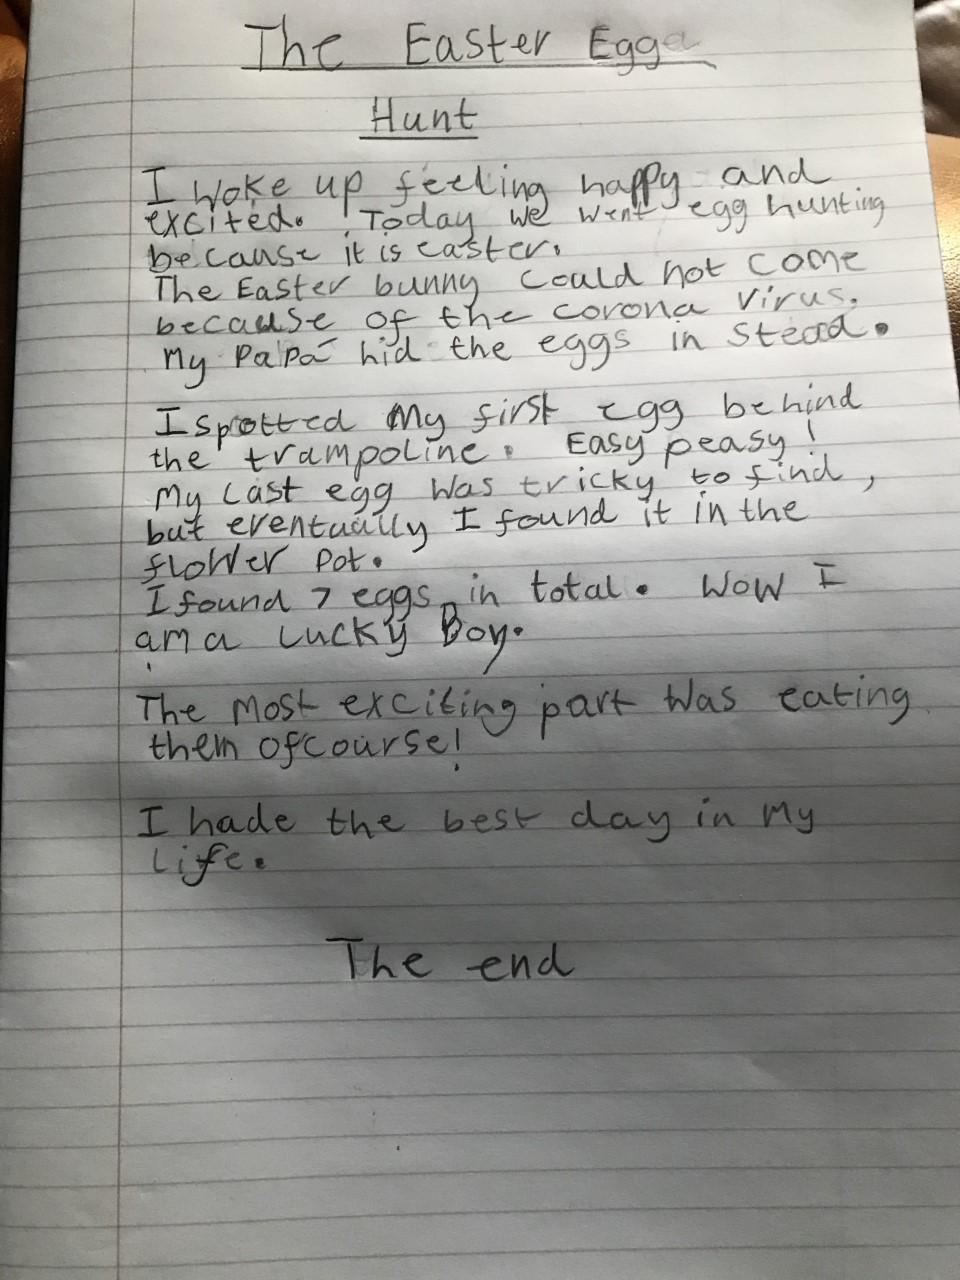 The Easter Egg
Hunt
I woke up feeling happy and
excited. Today we went egg hunting
because it is easter.
The Easter bunny could not come
because of the corona virus.
My Papa hid the eggs in stead.
I spotted My first egg behind
the trampoline. Easy peasy!
My last egg was tricky to find,
but eventually I found it in the
flower pot.
I found 7 eggs in total. Wow I
am a Lucky Boy.
The Most exciting part was eating
them ofcourse!
I hade the best day in My
Life.
The end